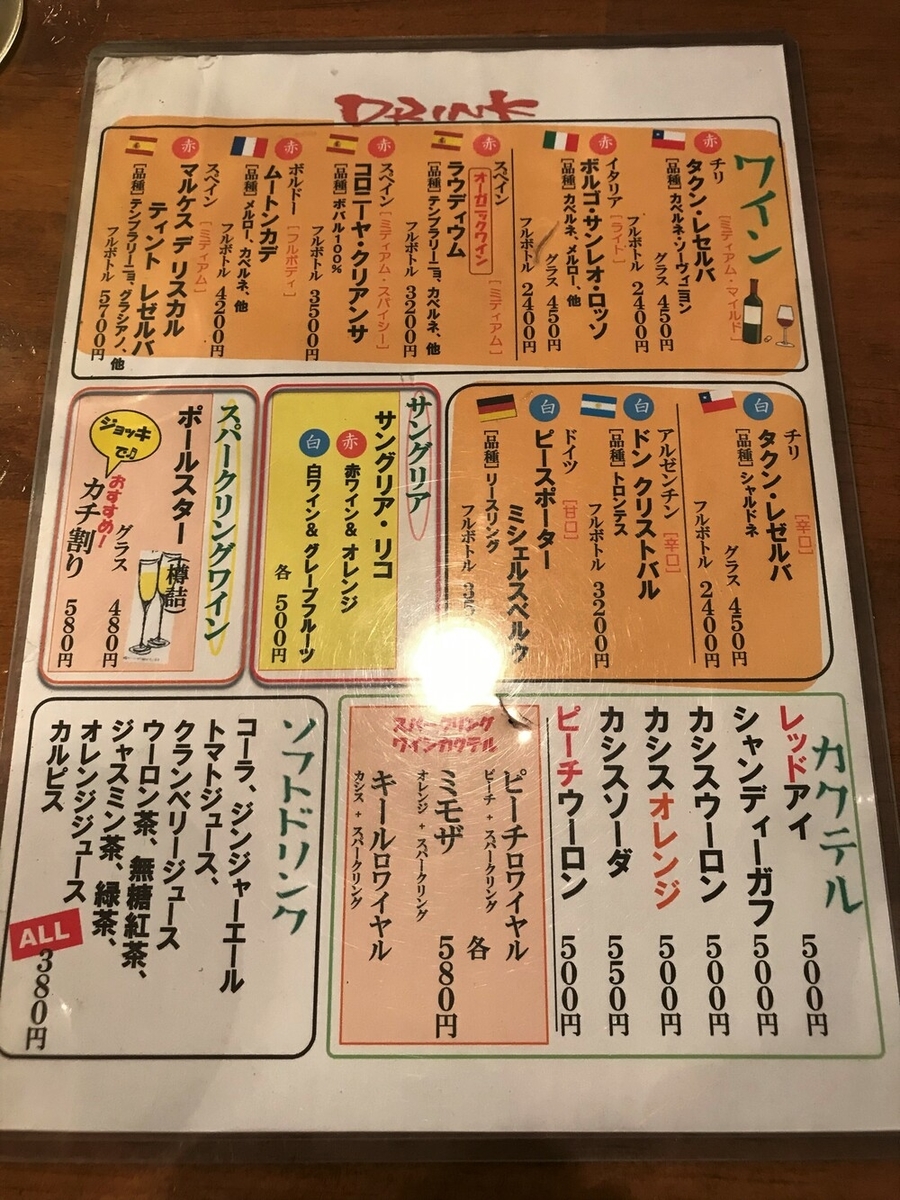 DRINK
ワイン
赤
チリ [ミディアム・マイルド]
タクン・レセルバ
[品種] カベルネ・ソーヴィニヨン
グラス 450円
フルボトル 2400円
赤
イタリア [ライト]
ボルゴ・サンレオ・ロッソ
[品種] カベルネ、メルロー、他
グラス 450円
フルボトル 2400円
赤
スペイン オーガニックワイン [ミディアム]
ラウディウム
[品種] テンプラリーニョ、カベルネ、他
フルボトル 3200円
赤
スペイン [ミディアム・スパイシー]
コロニーヤ・クリアンサ
[品種] ボバル100%
フルボトル 3500円
赤
ボルドー [フルボディ]
ムートンカデ
[品種] メルロー、カベルネ、他
フルボトル 4200円
赤
スペイン [ミディアム]
マルケス デ リスカル
ティント レゼルバ
[品種] テンプラリーニョ、グラシアノ、他
フルボトル 5700円
白
チリ [辛口]
タクン・レゼルバ
[品種] シャルドネ
グラス 450円
フルボトル 2400円
白
アルゼンチン [辛口]
ドン クリストバル
[品種] トロンテス
フルボトル 3200円
白
ドイツ [甘口]
ピースポーター
ミシェルスベルク
[品種] リースリング
フルボトル
サングリア
サングリア・リコ
赤 赤ワイン & オレンジ
白 白ワイン & グレープフルーツ
各 500円
スパークリングワイン
ポールスター (樽詰)
グラス 480円
ジョッキで♪
おすすめ!
カチ割り 580円
カクテル
レッドアイ 500円
シャンディーガフ 500円
カシスウーロン 500円
カシスオレンジ 500円
カシスソーダ 550円
ピーチウーロン 500円
スパークリング
ワインカクテル
ピーチロワイヤル
ピーチ + スパークリング
ミモザ
オレンジ + スパークリング
キールロワイヤル
カシス + スパークリング
各 580円
ソフトドリンク
コーラ、ジンジャーエール
トマトジュース、
クランベリージュース
ウーロン茶、無糖紅茶、
ジャスミン茶、緑茶、
オレンジジュース
カルピス
ALL 380円